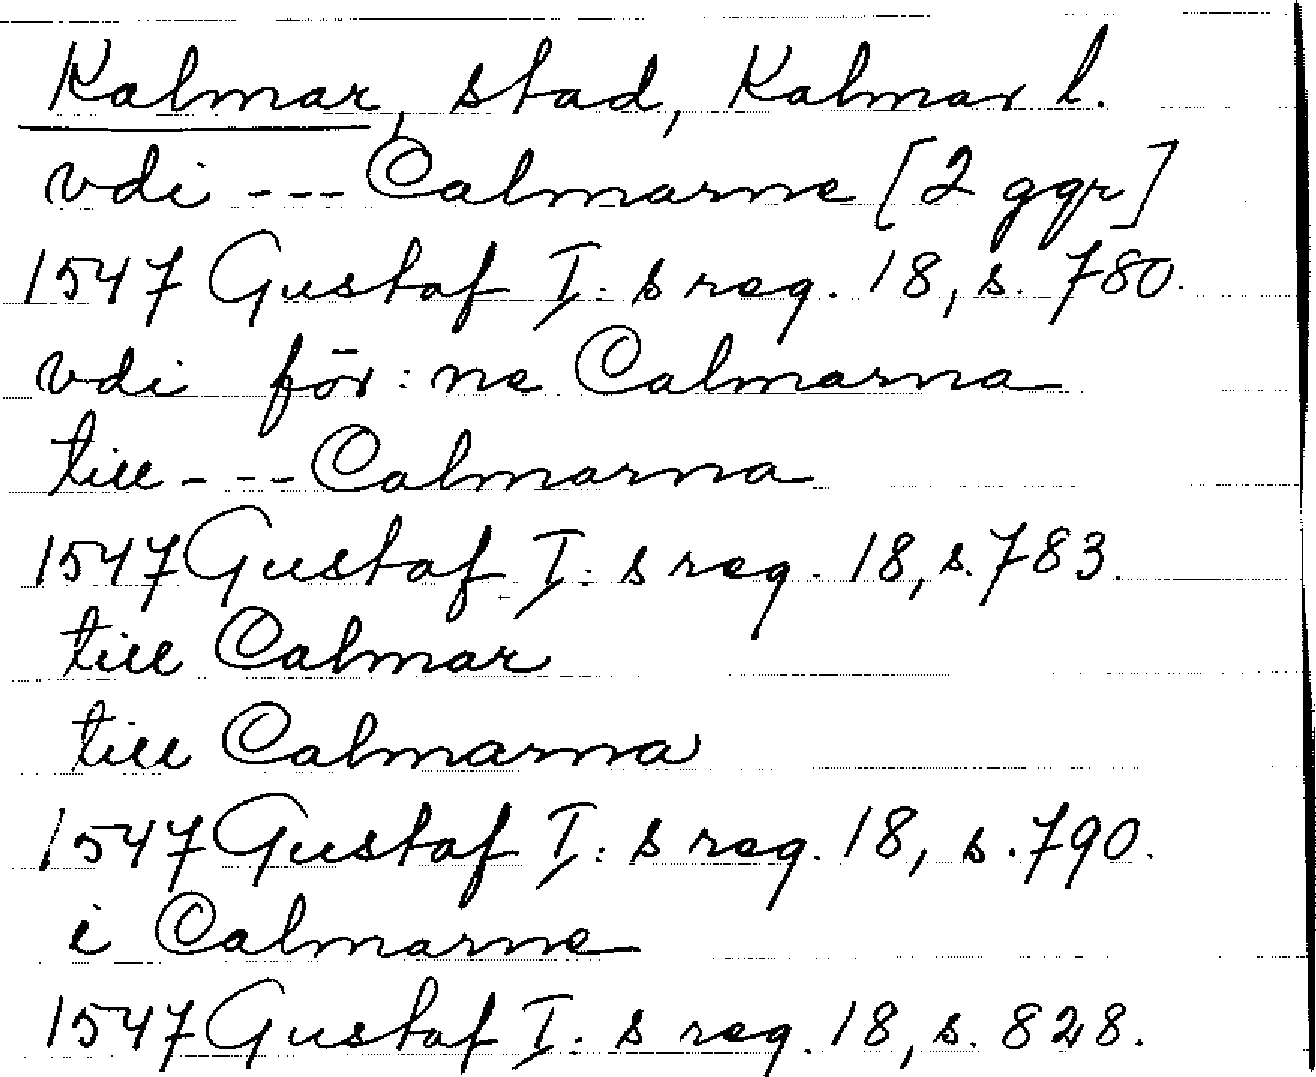 Kalmar, stad, Kalmar l.
vdi --- Calmarne [2 ggr]
1547 Gustaf I: s reg. 18, s. 780.
vdi för: ne Calmarna
till --- Calmarna
1547 Gustaf I: s reg. 18, s. 783.
till Calmar
till Calmarna
1547 Gustaf I: s reg. 18, s. 790.
i Calmarne
1547 Gustaf I: s reg. 18, s. 828.